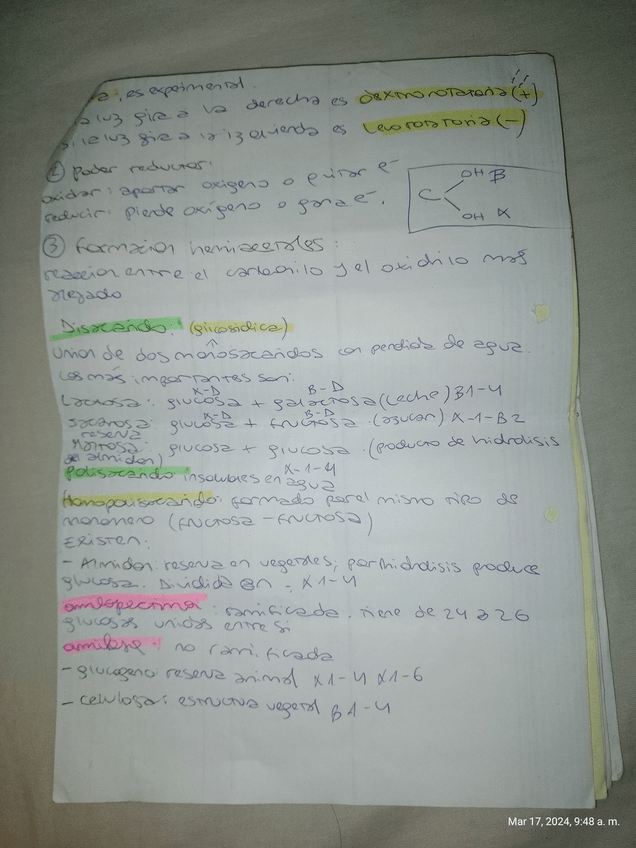 es experimental
la luz gira a la derecha es dextrorotatoria (+)
si la luz gira a la izquierda es levorotatoria (-)
② Poder reductor:
oxidar: aportar oxigeno o quitar e-
reducir: pierde oxígeno o gana e-.
C OH B
OH α
③ Formación hemiacetales:
reacción entre el carbonilo y el oxidrilo más
alejado
Disacárido: (glicosídica)
Unión de dos monosacáridos con perdida de agua.
Los más importantes son:
α-D B-D
Lactosa: glucosa + galactosa (Leche) B1-4
α-D B-D
Sacarosa: glucosa + fructosa (azucar) α-1-B2
reserva
Maltosa: glucosa + glucosa (producto de hidrolisis
de almidon) α-1-4
Polisacárido: insolubles en agua
Homopolisacárido: formado por el mismo tipo de
monomero (fructosa-fructosa)
Existen:
- Almidon: reserva en vegetales, por hidrolisis produce
glucosa. Dividida en = α1-4
amilopectina: ramificada. tiene de 24 a 26
glucosas unidas entre si
amilosa: no ramificada
- glucogeno: reserva animal α1-4 α1-6
- celulosa: estructura vegetal B1-4
Mar 17, 2024, 9:48 a. m.